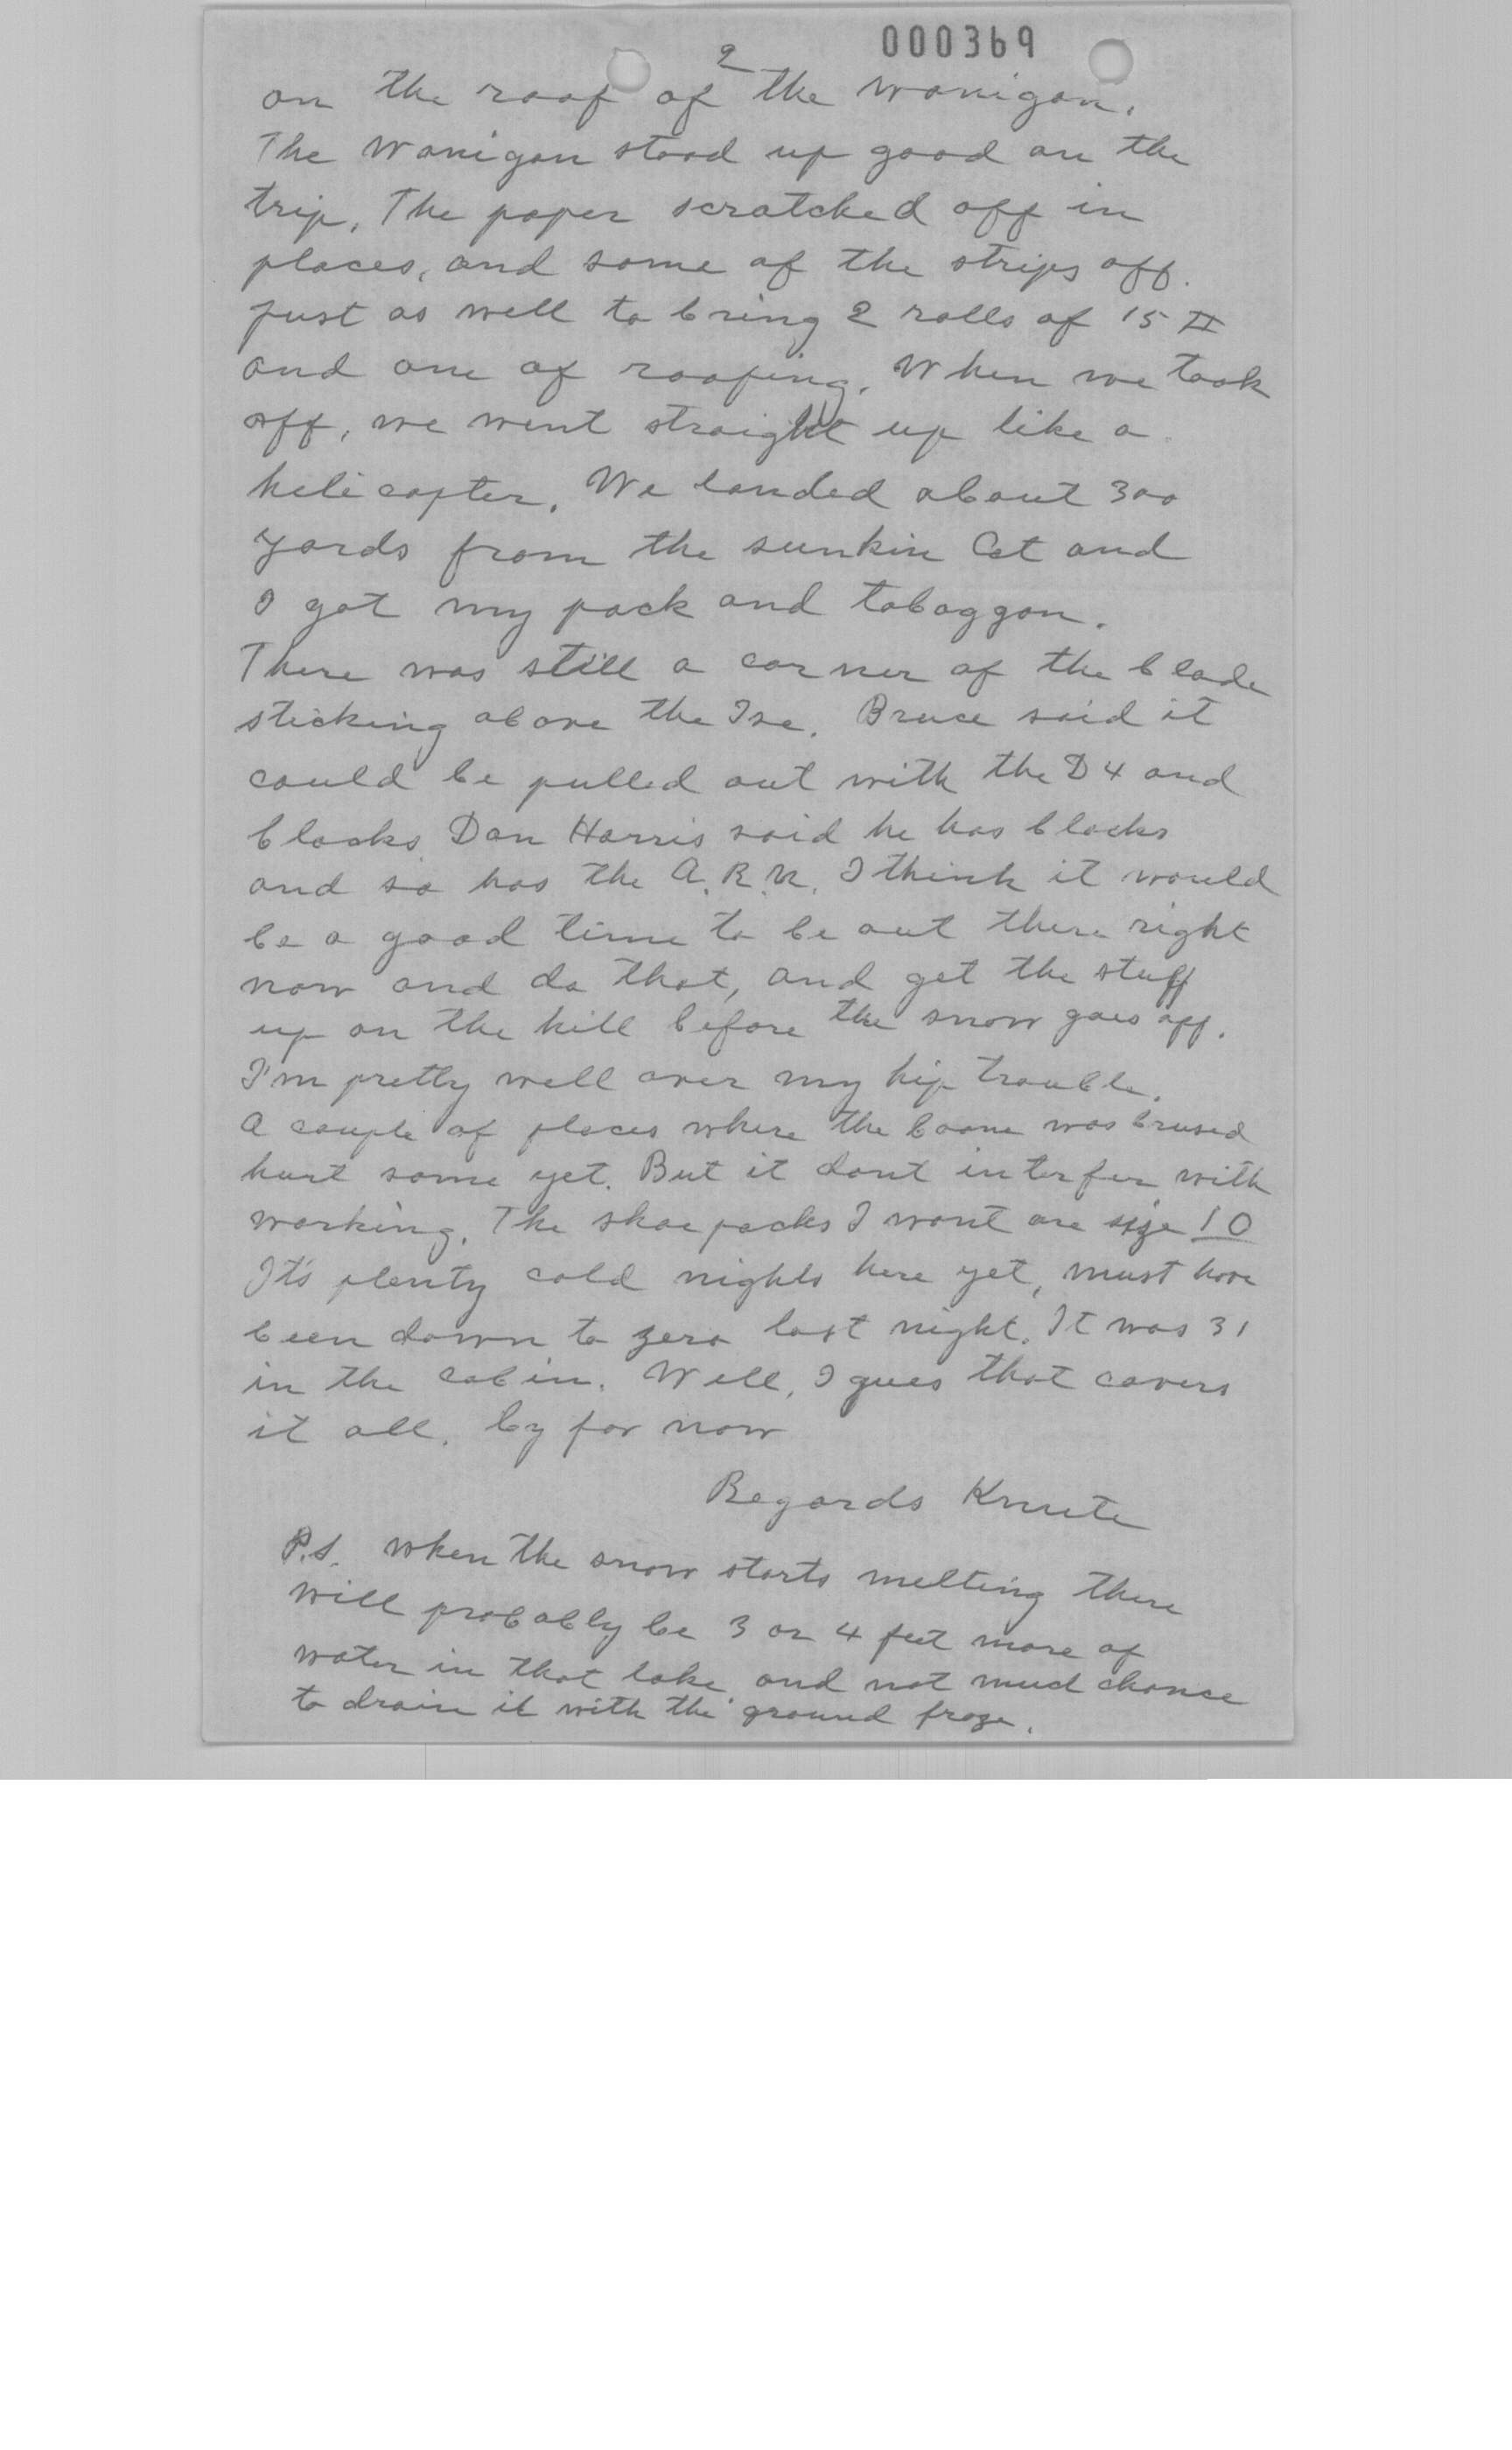 000369
2
on the roof of the wanigan.
The Wanigan stood up good on the
trip. The paper scratched off in
places, and some of the strips off.
Just as well to bring 2 rolls of 15 #
and one of roofing. When we took
off, we went straight up like a
helicopter. We landed about 300
yards from the sunkin Cat and
I got my pack and tobaggon.
There was still a corner of the blade
sticking above the Ise. Bruce said it
could be pulled out with the D4 and
blocks. Dan Harris said he has blocks
and so has the A.R.R. I think it would
be a good time to be out there right
now and do that, and get the stuff
up on the hill before the snow goes off.
I'm pretty well over my hip trouble.
A couple of places where the boone was brused
hurt some yet. But it dont interfer with
working. The shoepacks I want are size 10
It's plenty cold nights here yet, must have
been down to zero last night. It was 31
in the cabin. Well, I gues that covers
it all. by for now
Regards Knute
P.S. When the snow starts melting there
will probably be 3 or 4 feet more of
water in that lake, and not much chance
to drain it with the ground froze.